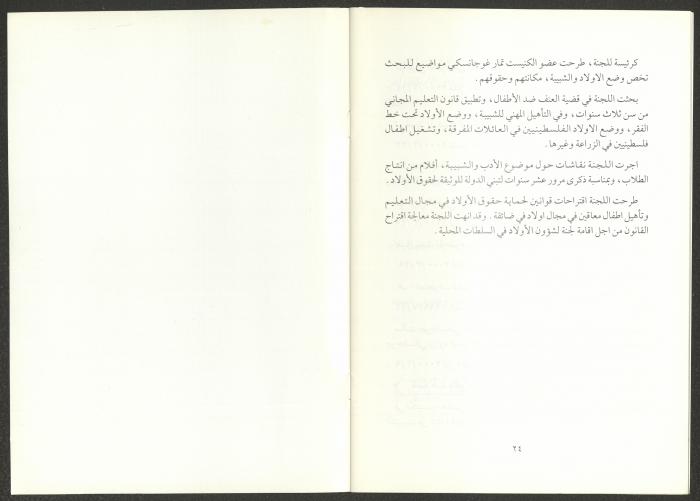 كرئيسة للجنة، طرحت عضو الكنيست تمار غوجانسكي مواضيع للبحث
تخص وضع الاولاد والشبيبة، مكانتهم وحقوقهم.
بحثت اللجنة في قضية العنف ضد الأطفال، وتطبيق قانون التعليم المجاني
من سن ثلاث سنوات، وفي التأهيل المهني للشبيبة، ووضع الأولاد تحت خط
الفقر، ووضع الاولاد الفلسطينيين في العائلات المفرقة، وتشغيل اطفال
فلسطينيين في الزراعة وغيرها.
اجرت اللجنة نقاشات حول موضوع الأدب والشبيبة، أفلام من انتاج
الطلاب، وبمناسبة ذكرى مرور عشر سنوات لتبني الدولة للوثيقة لحقوق الأولاد.
طرحت اللجنة اقتراحات قوانين لحماية حقوق الأولاد في مجال التعليم
وتأهيل اطفال معاقين في مجال اولاد في ضائقة. وقد انهت اللجنة معالجة اقتراح
القانون من اجل اقامة لجنة لشؤون الأولاد في السلطات المحلية.
٢٤